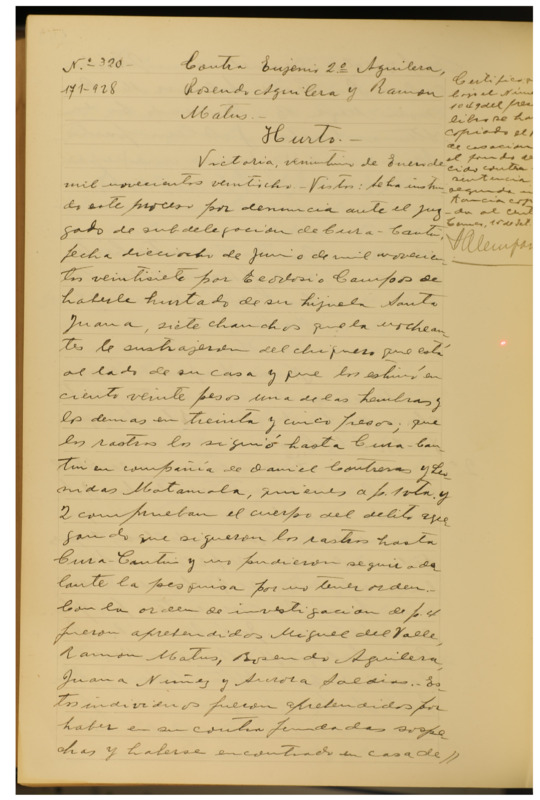 N.º 320- Contra Eugenio 2º Aguilera,
171-928 Rosendo Aguilera y Ramon
Matus.-
Hurto.-
Victoria, veintiuno de Enero de
mil novecientos veintiocho.- Vistos: Se ha instrui
do este proceso por denuncia ante el juz
gado de subdelegacion de Cura-Cautin,
fecha dieciocho de Junio de mil novecien
tos veintisiete por Teodosio Campos de
haberle hurtado de su hijuela Santa
Juana, siete chanchos que la noche an
tes le sustrajeron del chiquero que está
al lado de su casa y que los estimó en
ciento veinte pesos una de las hembras y
los demas en treinta y cinco pesos; que
los rastros los siguió hasta Cura-Cau-
tin en compañía de Daniel Contreras y Leo
nidas Matamala, quienes a p. 1 vta. y
2 comprueban el cuerpo del delito agre
gando que siguieron los rastros hasta
Cura-Cautin y no pudieron seguir ade
lante la pesquisa por no tener orden.-
Con la orden de investigacion de p. 4
fueron aprehendidos Miguel del Valle,
Ramon Matus, Rosendo Aguilera,
Juana Nuñez y Aurora Saldias.- Es-
tos individuos fueron aprehendidos por
haber en su contra fundadas sospe
chas y haberse encontrado en casa de //
Certifico
libro se ha
copiado el
de casacion
el fondo de
cido contra
sentencia
segunda in
stancia cop